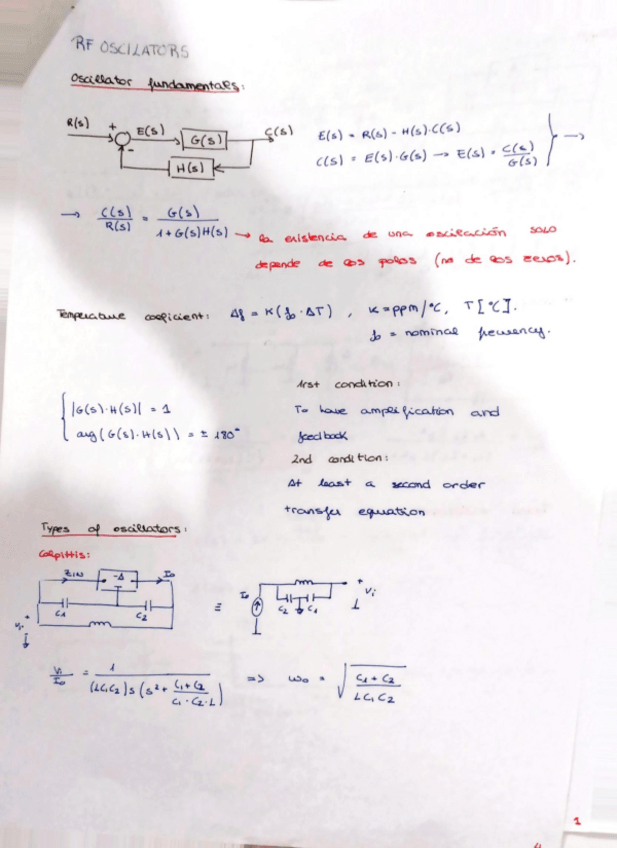 RF OSCILATORS
Oscillator fundamentals:
R(s) + - E(s) G(s) C(s)
H(s)
E(s) = R(s) - H(s)·C(s)
C(s) = E(s)·G(s) → E(s) = C(s)/G(s) } →
→ C(s)/R(s) = G(s)/1+G(s)H(s) → la existencia de una oscilación solo
depende de los polos (no de los zeros).
Temperature coeficient: Δf = K(fo·ΔT), K = ppm/°C, T[°C].
fo = nominal frecuency.
|G(s)·H(s)| = 1
arg(G(s)·H(s)) = ± 180°
1rst condition:
To have amplification and
feedback
2nd condition:
At least a second order
transfer equation
Types of oscillators:
Colpittis:
ZIN -Δ Io
C1 C2
Vi +
≡
Io C2 C1 + Vi
Vi/Io = 1/(LC1C2)s(s²+ C1+C2/C1·C2·L) => ωo = √C1+C2/LC1C2
1